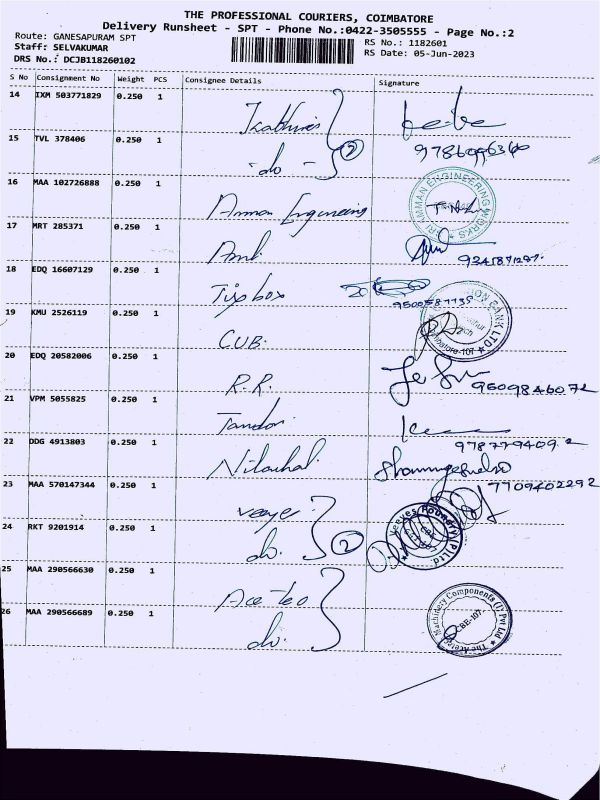 THE PROFESSIONAL COURIERS, COIMBATORE
Delivery Runsheet - SPT - Phone No.:0422-3505555 - Page No.:2
Route: GANESAPURAM SPT
Staff: SELVAKUMAR
DRS No.: DCJB118260102
RS No.: 1182601
RS Date: 05-Jun-2023
S No Consignment No Weight PCS Consignee Details Signature
14 IXM 503771829 0.250 1
15 TVL 378406 0.250 1 -do- 2
16 MAA 102726888 0.250 1 Amman Engineering
AMMAN ENGINEERING WORKS
17 MRT 285371 0.250 1
18 EDQ 16607129 0.250 1 Tipbox
19 KMU 2526119 0.250 1 CUB.
BANK LTD
20 EDQ 20582006 0.250 1 R.R. 9509846072
21 VPM 5055825 0.250 1 Tandon
22 DDG 4913803 0.250 1 Nilachal
7709402292
23 MAA 570147344 0.250 1
24 RKT 9201914 0.250 1 do. 2
Foundry (P) Ltd
25 MAA 290566630 0.250 1 Ace-teo
26 MAA 290566689 0.250 1 do.
Machinery Components (I) Pvt Ltd
CBE-107